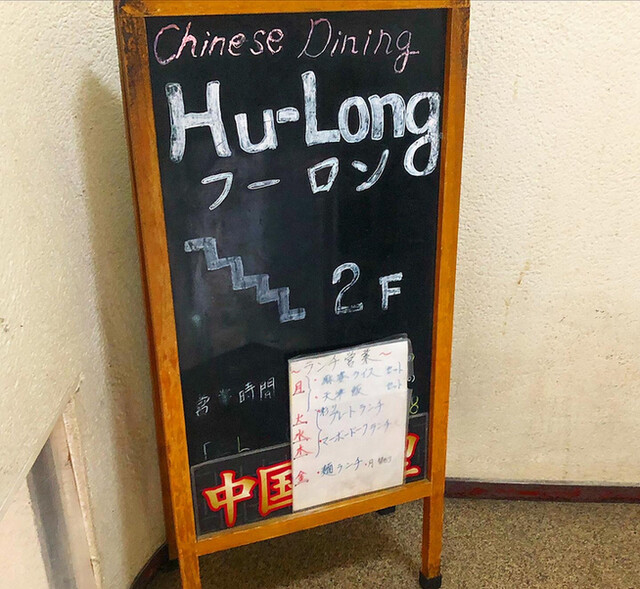 Chinese Dining
Hu-Long
フーロン
2F
営業時間
～ランチ営業～
月
・麻婆ライス セット
・天津飯 セット
火
プレートランチ
水
・マーボードーフランチ
木
金
・麺ランチ
中国